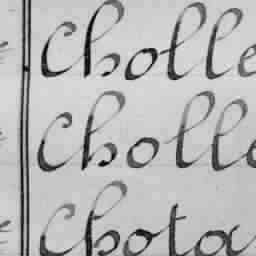 Cholle
Cholle
Chota